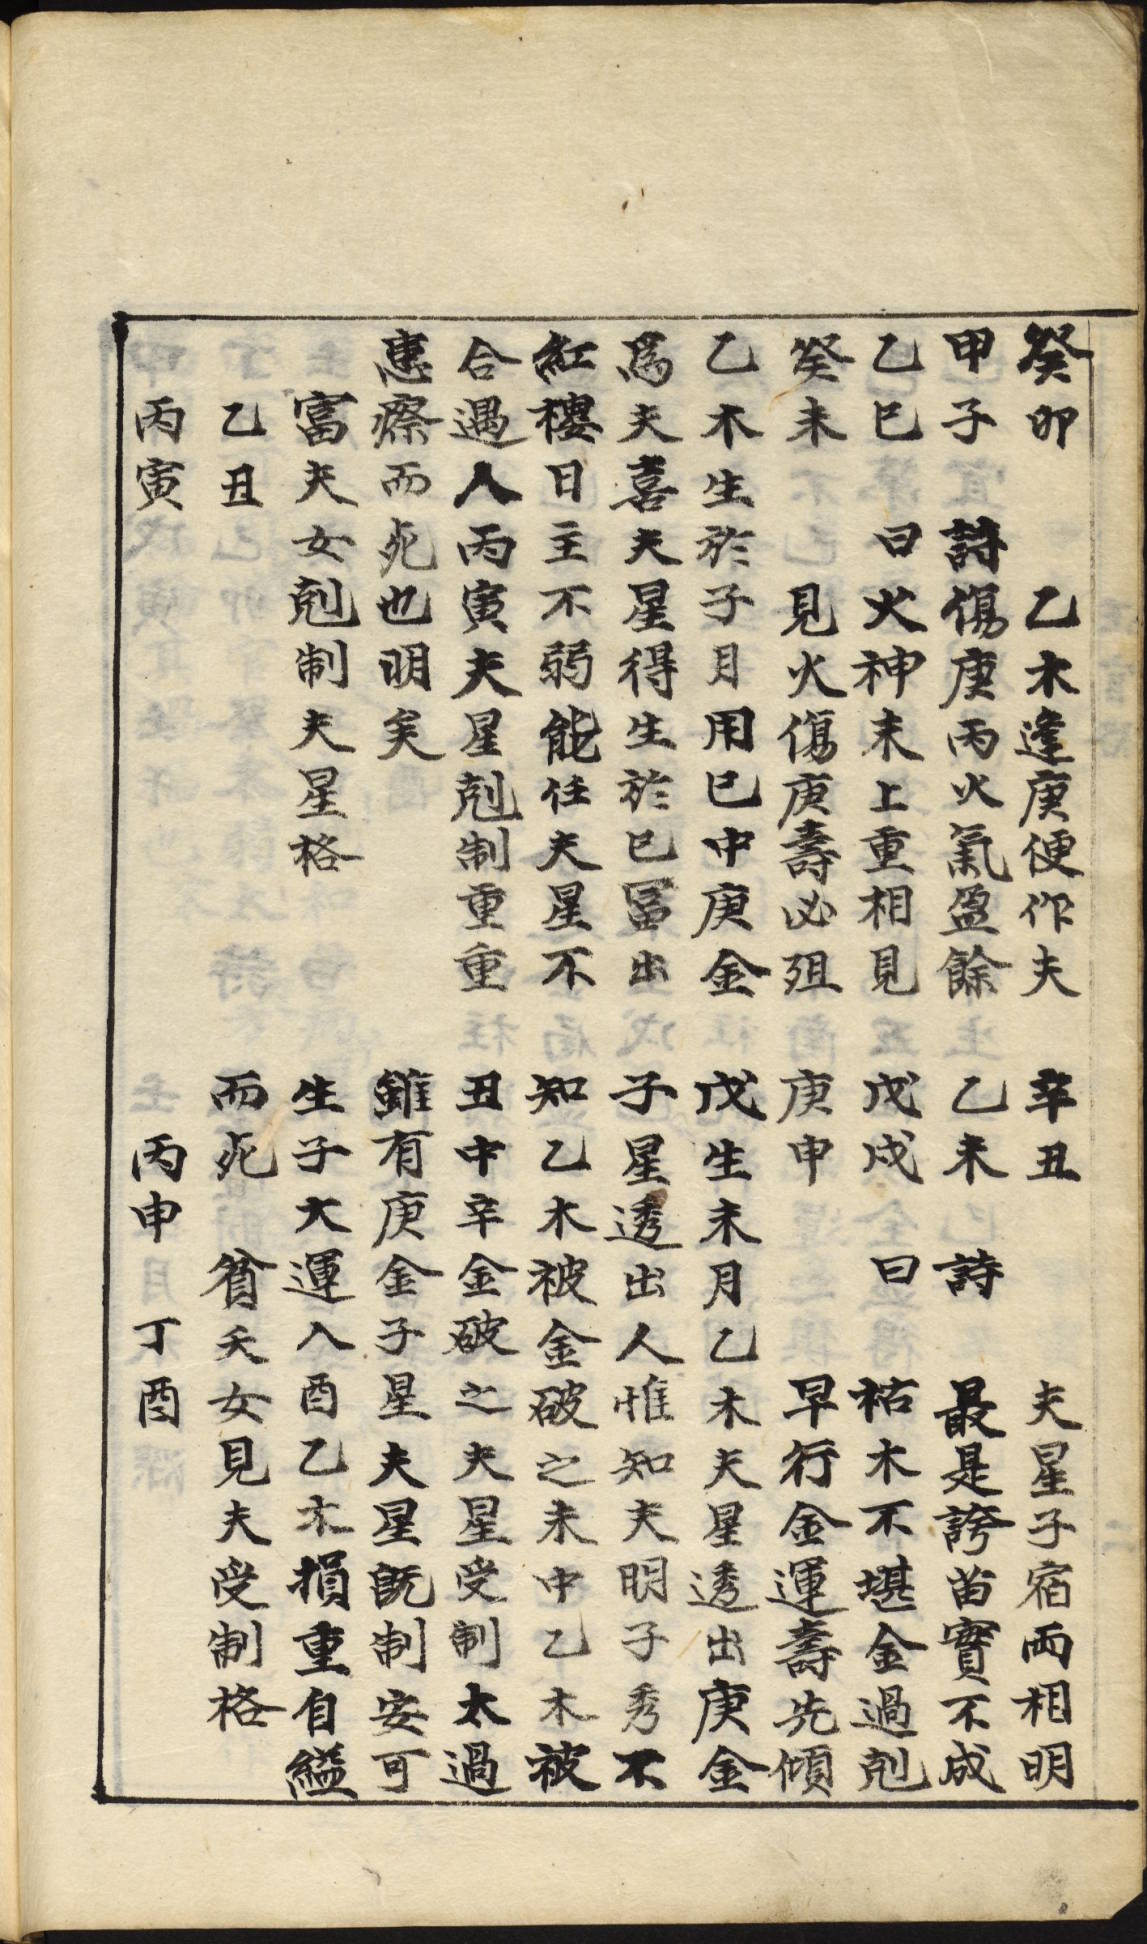 癸卯 乙木逢庚便作夫
甲子 詩傷庚丙火氣盈餘
乙巳 曰火神未上重相見
癸未 見火傷庚壽必殂
乙木生於子月用巳中庚金
爲夫喜夫星得生於巳冨出
紅樓日主不弱能任夫星不
合遇人丙寅夫星剋制重重
患瘵而死也明矣
富夫女剋制夫星格
乙丑
丙寅
辛丑 夫星子宿両相明
乙未 詩 最是誇苗實不成
戊戌 曰 枯木不堪金過剋
庚申 早行金運壽先傾
戊生未月乙木夫星透出庚金
子星透出人惟知夫明子秀不
知乙木被金破之未中乙木被
丑中辛金破之夫星受制太過
雖有庚金子星夫星既制安可
生子大運入酉乙木損重自縊
而死 貧夭女見夫受制格
丙申 丁酉